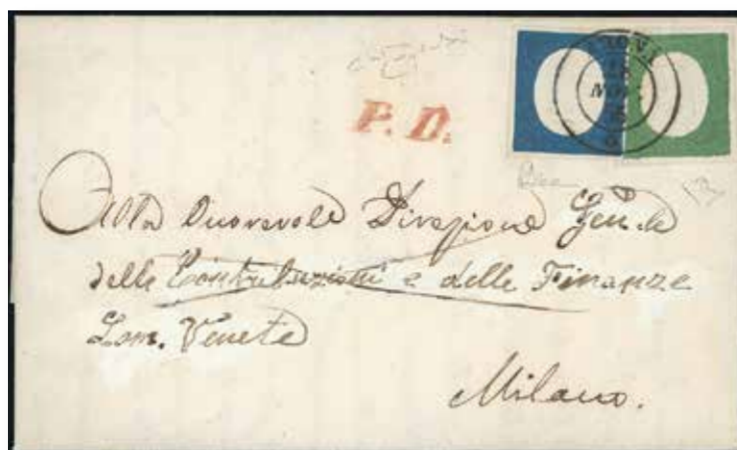 P. D.
NOV
Alla Onorevole Direzione Gen.le
delle Contribuzioni e delle Finanze
Lom. Venete
Milano.